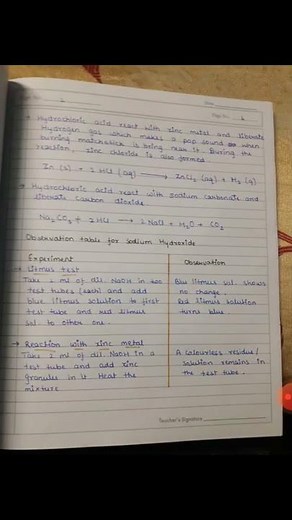 Page No. 2
Date
Page No. 2
→ Hydrochloric acid react with zinc metal and liberate
Hydrogen gas which makes a pop sound when
burning matchstick is bring near it. During the
reaction, zinc chloride is also formed
Zn (s) + 2 HCl (aq) → ZnCl2 (aq) + H2 (g)
→ Hydrochloric acid react with Sodium carbonate and
liberate Carbon dioxide
Na2CO3 + 2 HCl → 2 NaCl + H2O + CO2
Observation table for Sodium Hydroxide
Experiment Observation
→ Litmus test
Take 1 ml of dil. NaOH in two
test tubes (each) and add
blue litmus solution to first
test tube and red litmus
sol to other one.
Blue litmus sol. shows
no change.
Red litmus solution
turns blue
→ Reaction with zinc metal
Take 1 ml of dil. NaOH in a
test tube and add zinc
granules in it Heat the
mixture
A colourless residue/
solution remains in
the test tube.
Teacher's Signature